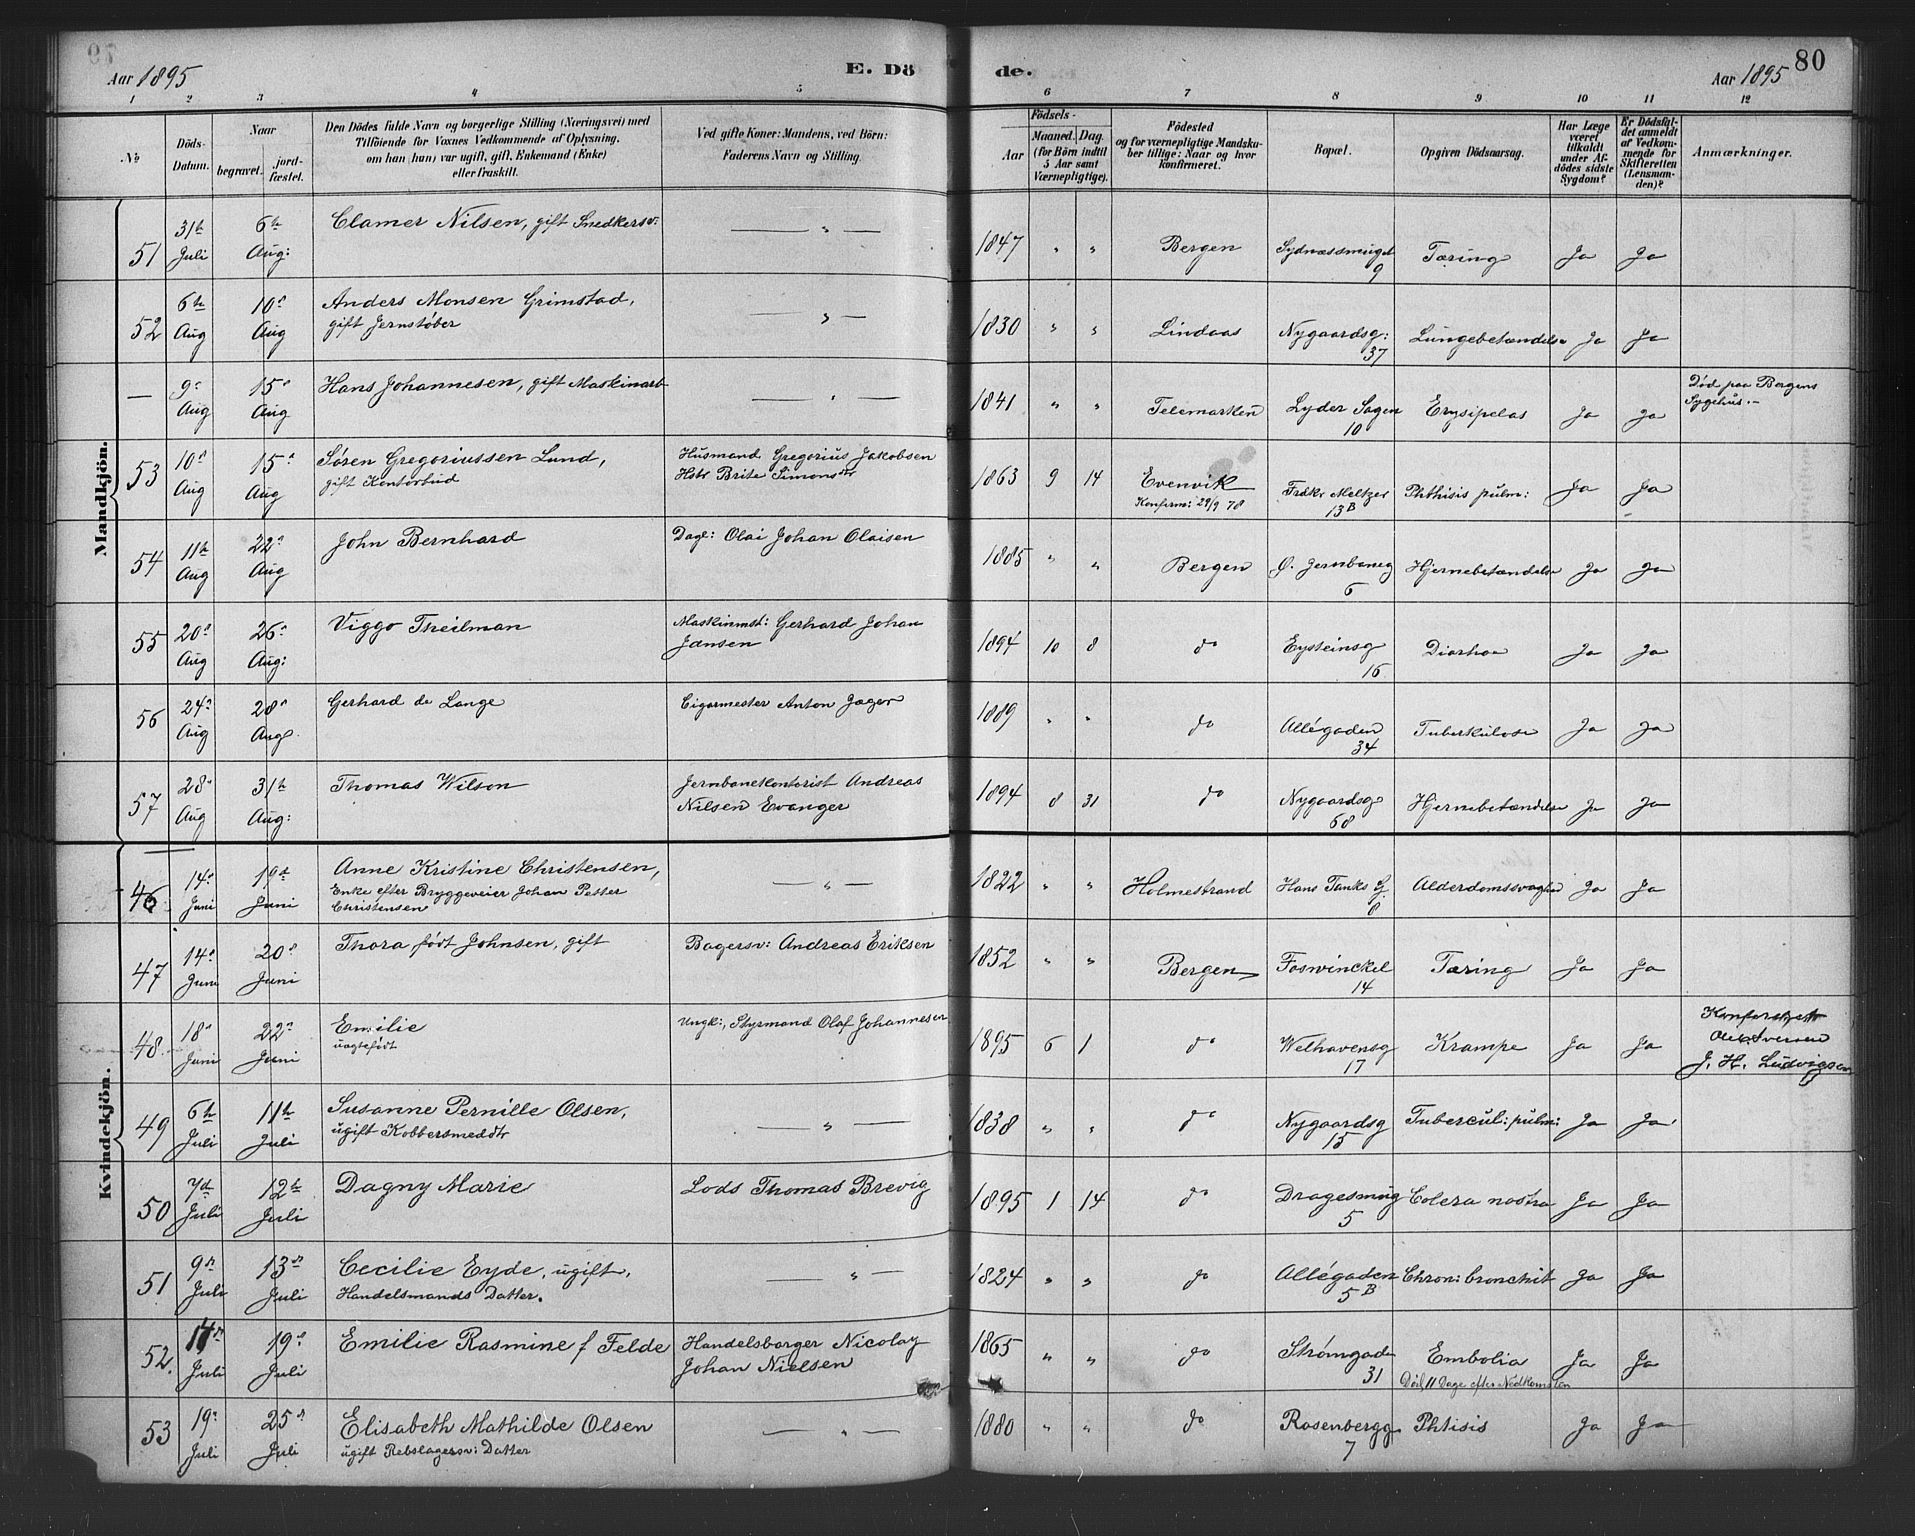 Aar 1895
E. Dö
de.
Aar 1895
80
1 2 3 4 5 6 7 8 9 10 11 12
No
Döds-Datum.
Naar
begravet.
jord-fæstet.
Den Dödes fulde Navn og borgerlige Stilling (Næringsvei) med
Tilföiende for Voxnes Vedkommende af Oplysning,
om han (hun) var ugift, gift, Enkemand (Enke)
eller fraskilt.
Ved gifte Koner: Mandens, ved Börn:
Faderens Navn og Stilling.
Födsels-
Aar
Maaned. Dag.
(for Börn indtil
5 Aar samt
Værnepligtige).
Födested
og for værnepligtige Mandska-
ber tillige: Naar og hvor
konfirmeret.
Bopæl.
Opgiven Dödsaarsag.
Har Læge
været
tilkaldt
under Af-
dödes sidste
Sygdom?
Er Dödsfal-
det anmeldt
af Vedkom-
mende for
Skifteretten
(Lensman-
den)?
Anmærkninger.
Mandkjön.
51 31te Juli 6te Aug: Clamer Nilsen, gift Snedkersv: — „ — 1847 „ „ Bergen Sydnæssmuget 9 Tæring Ja Ja
52 6te Aug 10de Aug Anders Monsen Grimstad,
gift Jernstøber — „ — 1830 „ „ Lindaas Nygaardsg: 37 Lungebetændelse Ja Ja
— 9de Aug 15de Aug Hans Johannesen, gift Maskinarb — „ — 1841 „ „ Telemarken Lyder Sagen 10 Erysipelas Ja Ja Død paa Bergens
Sygehus.
53 10de Aug 15de Aug Søren Gregoriussen Lund,
gift Kontorbud Husmand Gregorius Jakobsen
Hstr Brite Simonsdtr 1863 9 14 Evenvik
Konfirm: 29/9 78 Fredkr Meltzer 13B Phthisis pulm: Ja Ja
54 11te Aug 22de Aug John Bernhard Dagl: Olai Johan Olaisen 1885 „ „ Bergen Ø. Jernbaneg 6 Hjernebetændelse Ja Ja
55 20de Aug 26de Aug: Viggo Theilman Maskinmst: Gerhard Johan
Jansen 1894 10 8 do Eysteinsg 16 Diarhoe Ja Ja
56 24de Aug 28de Aug Gerhard de Lange Cigarmester Anton Jæger 1889 „ „ do Allégaden 34 Tuberkulose Ja Ja
57 28de Aug 31te Aug: Thomas Wilson Jernbanekontorist Andreas
Nilsen Evanger 1894 8 31 do Nygaardsg 68 Hjernebetændelse Ja Ja
Kvindekjön.
46 14de Juni 19de Juni Anne Kristine Christensen,
Enke efter Bryggeveier Johan Petter
Christensen — „ — 1822 „ „ Holmestrand Hans Tanks G. 8 Alderdomssvaghed Ja Ja
47 14de Juni 20de Juni Thora født Johnsen, gift Bagersv: Andreas Eriksen 1852 „ „ Bergen Foswinckel 14 Tæring Ja Ja
48 18de Juni 22de Juni Emilie
uægtefødt Ungk:, Styrmand Olaf Johannesen 1895 6 1 do Welhavensg 17 Krampe Ja Ja J. H. Ludvigsen
49 6te Juli 11te Juli Susanne Pernille Olsen,
ugift Kobbersmeddtr — „ — 1838 „ „ do Nygaardsg 15 Tubercul: pulm: Ja Ja
50 7de Juli 12te Juli Dagny Marie Lods Thomas Brevig 1895 1 14 do Dragesmug 5 Colera nostra Ja Ja
51 9de Juli 13de Juli Cecilie Eyde, ugift,
Handelsmands Datter. — „ — 1824 „ „ do Allégaden 5B Chron: bronchit Ja Ja
52 14de Juli 19de Juli Emilie Rasmine f Felde Handelsborger Nicolay
Johan Nielsen 1865 „ „ do Strømgaden 31 Embolia
Død 11 Dage efter Nedkomsten Ja Ja
53 19de Juli 25de Juli Elisabeth Mathilde Olsen
ugift Rebslagersv: Datter — „ — 1880 „ „ do Rosenbergg 7 Phtisis Ja Ja